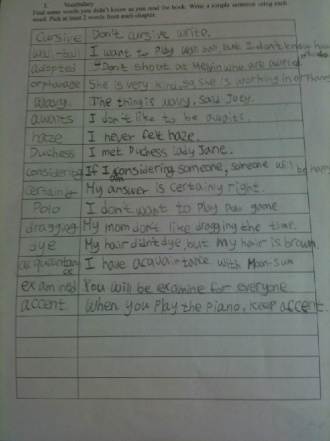 1. Vocabulary
Find some words you didn't know as you read the book. Write a simple sentence using each
word. Pick at least 2 words from each chapter.
Cursive Don't cursive write.
I want to play but I don't know how
adopted Don't shout at who are adopted.
orphanage She is very kind, so she is working in orphanage
The thing is said Joey.
awaits I don't like to be awaits.
haze I never felt haze.
Duchess I met Duchess Lady Jane.
considering If I am considering someone, someone will be happy
certainly My answer is certainly right.
Polo I don't want to play Polo game
dragging My mom don't like dragging the time.
dye My hair didn't dye, but my hair is brown.
acquaintance I have acquaintance with Moon-Sun
examined You will be examine for everyone
accent. When you play the piano, keep accent.